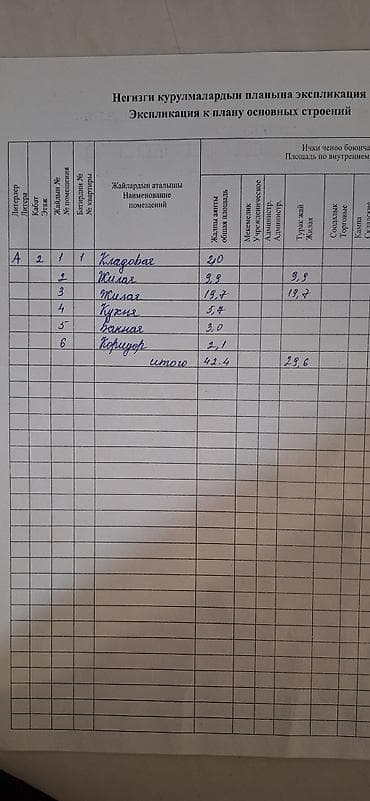 Негизги курулмалардын планына экспликация
Экспликация к плану основных строений
Ички ченөө боюнча
Площадь по внутреннем
Литерлер
Литера
Кабат
Этаж
Жайдын №
№ помещения
Батирдин №
№ квартиры
Жайлардын аталышы
Наименование
помещений
Жалпы аянты
общая площадь
Мекемелик
Учрежденическое
Администр.
Администр.
Турак жай
Жилая
Соодалык
Торговые
Кампа
Складские
А 2 1 1 Кладовая 2,0
2 Жилая 9,9 9,9
3 Жилая 19,7 19,7
4 Кухня 5,7
5 Ванная 3,0
6 Коридор 2,1
итого 42.4 29,6